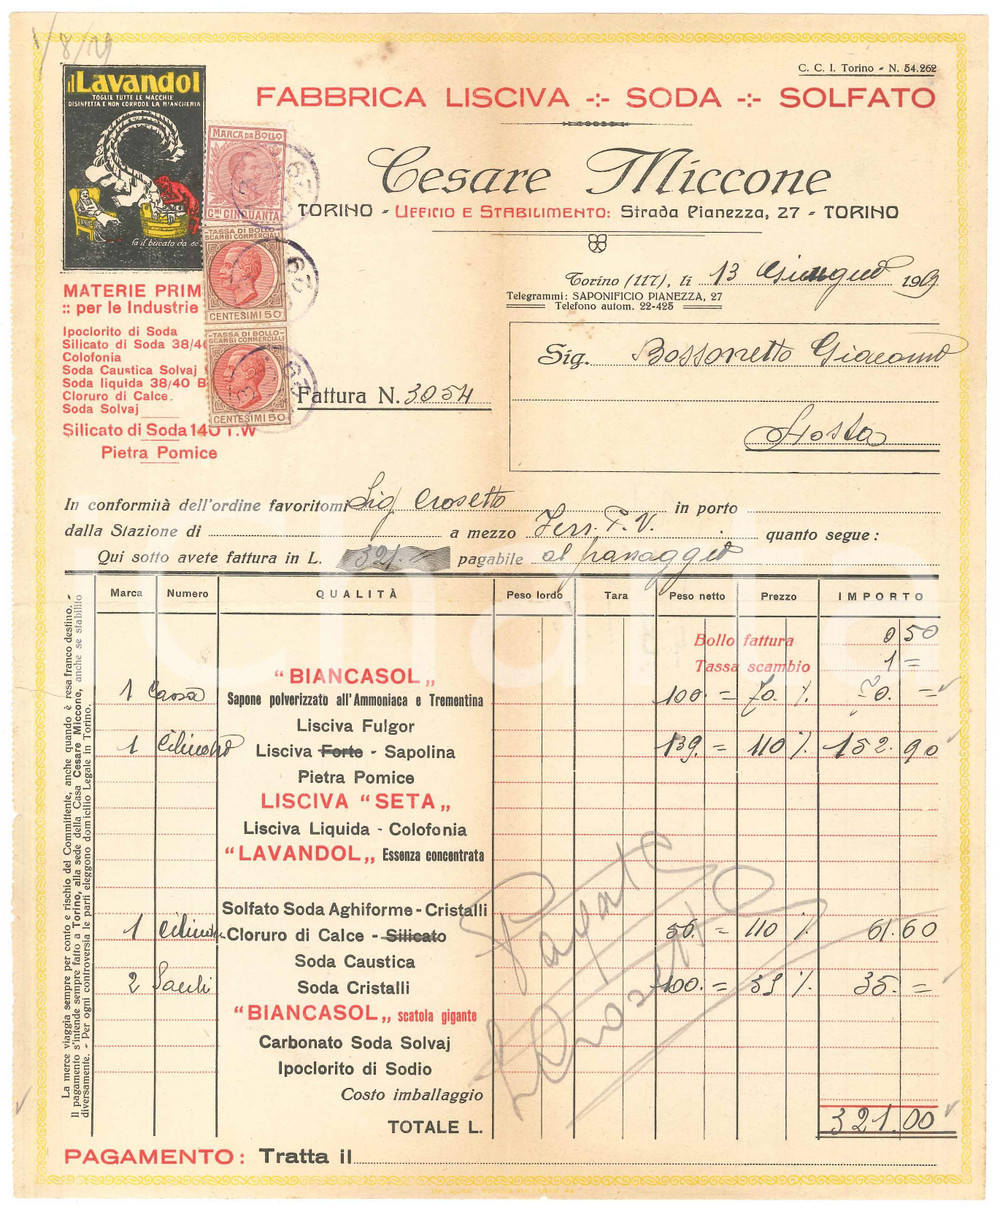 1/8/29
il Lavandol
TOGLIE TUTTE LE MACCHIE
DISINFETTA E NON CORRODE LA BIANCHERIA
fa il bucato da se
MARCA DA BOLLO
Cmi CINQUANTA
TASSA DI BOLLO
SCAMBI COMMERCIALI
CENTESIMI 50
TASSA DI BOLLO
SCAMBI COMMERCIALI
CENTESIMI 50
C. C. I. Torino - N. 54.262
FABBRICA LISCIVA -:- SODA -:- SOLFATO
Cesare Miccone
TORINO - UFFICIO E STABILIMENTO: Strada Pianezza, 27 - TORINO
Torino (117), li 13 Giugno 1929
Telegrammi: SAPONIFICIO PIANEZZA, 27
Telefono autom. 22-425
MATERIE PRIM
:: per le Industrie
Ipoclorito di Soda
Silicato di Soda 38/40
Colofonia
Soda Caustica Solvaj
Soda liquida 38/40 B
Cloruro di Calce
Soda Solvaj
Silicato di Soda 140 T.W
Pietra Pomice
Sig. Bossonetto Giacomo
Aosta
Fattura N. 3054
In conformità dell'ordine favoritomi Sig Crosetto in porto
dalla Stazione di a mezzo Ferr. P.V. quanto segue:
Qui sotto avete fattura in L. 321.= pagabile al passaggio
Marca Numero QUALITÀ Peso lordo Tara Peso netto Prezzo IMPORTO
Bollo fattura 0 50
Tassa scambio 1 =
"BIANCASOL„
1 Cassa Sapone polverizzato all'Ammoniaca e Trementina 100 = 70. % 70. =
Lisciva Fulgor
1 Cilindro Lisciva Forte - Sapolina 139 = 110 % 152.90
Pietra Pomice
LISCIVA "SETA„
Lisciva Liquida - Colofonia
"LAVANDOL„ Essenza concentrata
Solfato Soda Aghiforme - Cristalli
1 Cilindro Cloruro di Calce - Silicato 56. = 110 % 61.60
Soda Caustica
2 Sacchi Soda Cristalli 100. = 35 % 35. =
"BIANCASOL„ scatola gigante
Carbonato Soda Solvaj
Ipoclorito di Sodio
Costo imballaggio
TOTALE L. 321.00
Pagato
Crosetto
PAGAMENTO: Tratta il
La merce viaggia sempre per conto e rischio del Committente, anche quando è resa franco destino. -
Il pagamento s'intende sempre fatto a Torino, alla sede della Casa Cesare Miccone, anche se stabilito
diversamente. - Per ogni controversia le parti eleggono domicilio Legale in Torino.